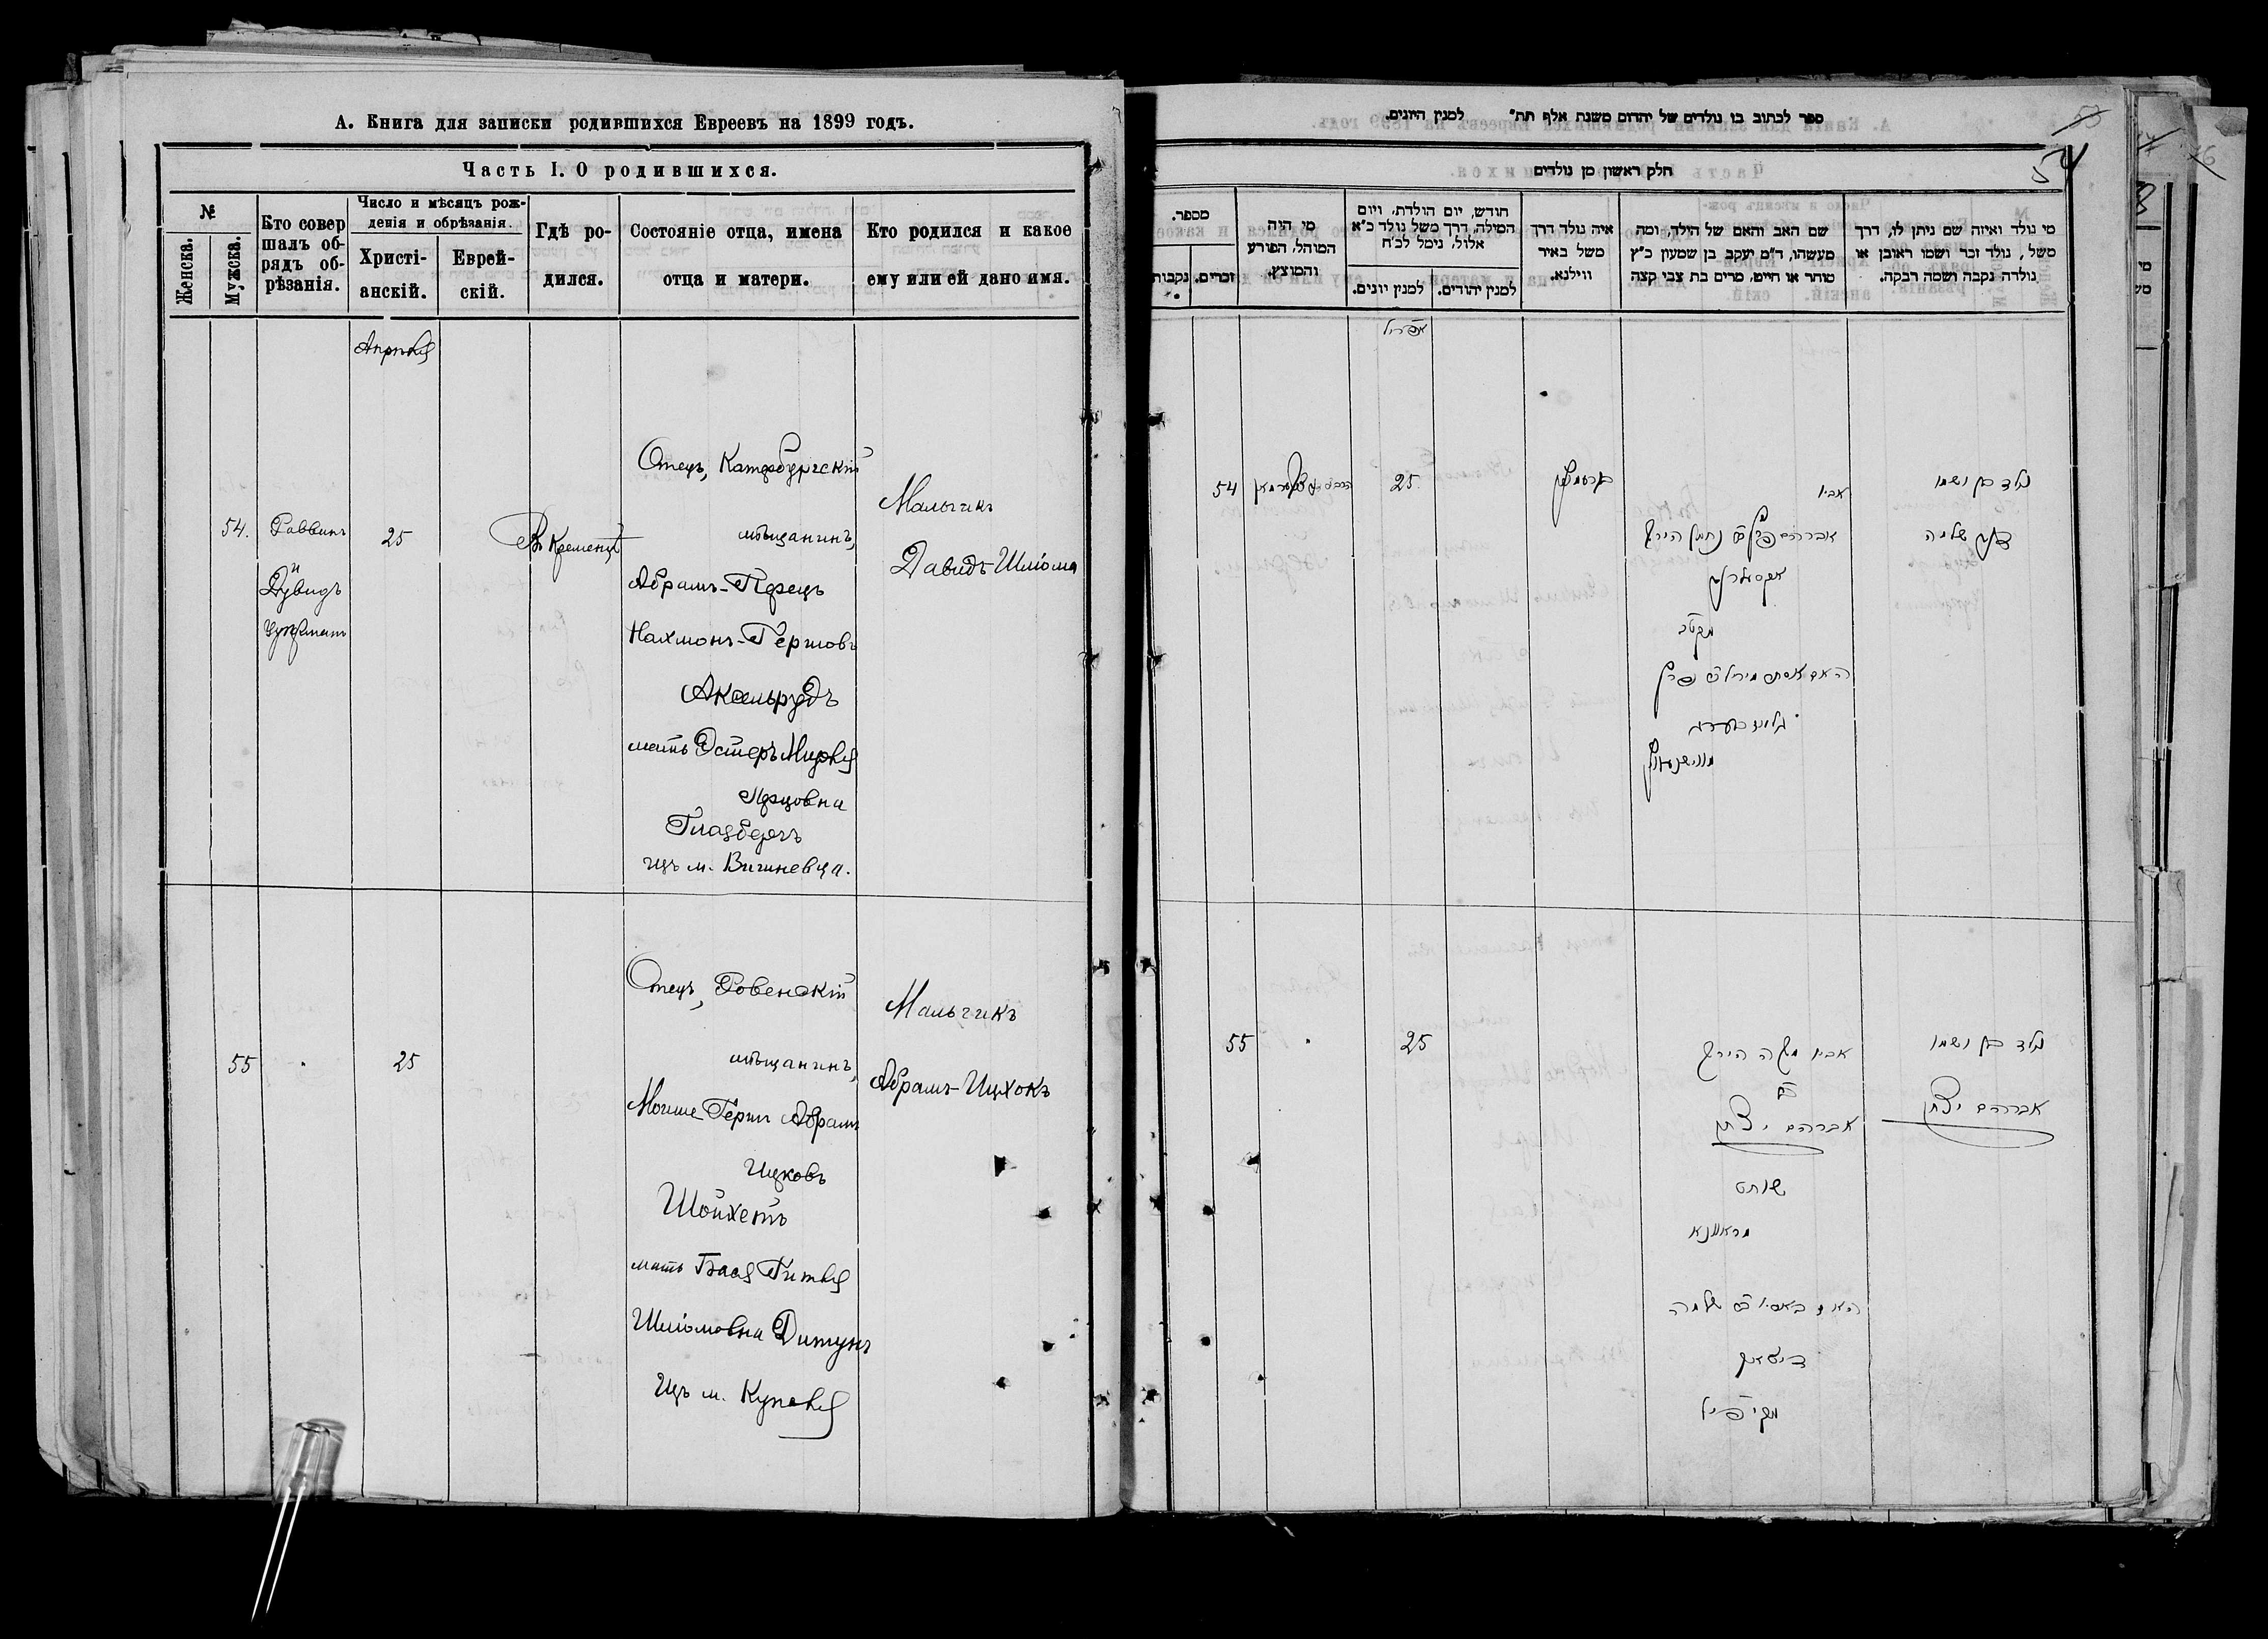 А. Книга для записки родившихся Евреевъ на 1899 годъ.
Часть I. О родившихся.
№
Женска.
Мужска.
Кто совер
шалъ об-
рядъ об-
рѣзанія.
Число и мѣсяцъ рож-
денія и обрѣзанія.
Христі-
анскій.
Еврей-
скій.
Гдѣ ро-
дился.
Состояніе отца, имена
отца и матери.
Кто родился и какое
ему или ей дано имя.
Апрѣля
54.
Раввинъ
Дувидъ
25
Въ Кременцѣ
Отецъ, Катербургскій
мѣщанинъ,
Абрамъ-Перецъ
Нахманъ-Гершовъ
Аксельрудъ
мать Эстеръ Мирля
Перцовна
Глазбергъ
изъ м. Вишневца.
Мальчикъ
Давидъ-Шлиома
55
25
Отецъ, Ровенскій
мѣщанинъ,
Моише Гершъ Абрамъ
Ицковъ
Шойхетъ
мать Бася Гитля
Шліомовна Дитунъ
Изъ м. Купеля
Мальчикъ
Абрамъ-Ицхокъ
ספר לכתוב בו נולדים של יהדום משנת אלף תת" למנין היונים.
54
חלק ראשון מן נולדים
מספר.
נקבות
זכרים.
מי היה
המוהל, הפורע
והמוצץ.
חודש, יום הולדת, ויום
המילה, דרך משל נולד כ"א
אלול, נימל לכ"ח
למנין יונים.
למנין יהודים.
איה נולד דרך
משל באיר
ווילנא.
שם האב והאם של הילד, ומה
מעשהו, ד"מ יעקב בן שמעון כ"ץ
סוחר או חייט, מרים בת צבי קצה
מי נולד ואיזה שם ניתן לו, דרך
משל, נולד זכר ושמו ראובן או
נולדה נקבה ושמה רבקה.
אפריל
54
25.
קרעמניץ
אביו
אברהם פרץ ב"ר נחמן הירש
אקסלרוד
האם אסתר מירל ב"ר פרץ
גלוזבערג
נולד בן ושמו
דוד שלמה
55
25
אביו משה הירש
ב"ר
אברהם יצחק
שוחט
מראוונא
האם באסי ב"ר שלמה
דיטאן
מקופיל
נולד בן ושמו
אברהם יצחק